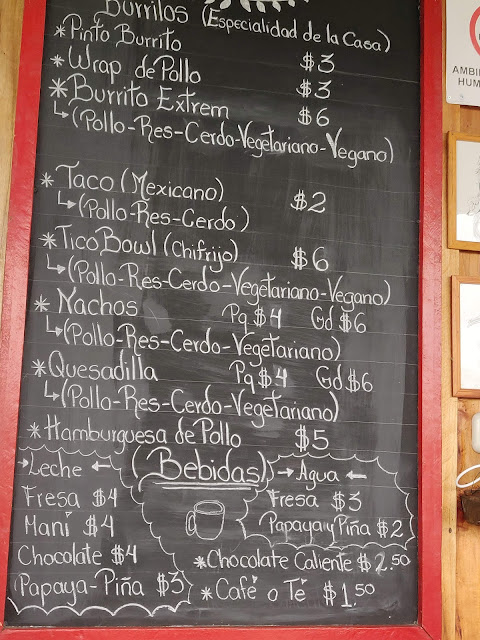 Burritos (Especialidad de la Casa)
* Pinto Burrito $3
* Wrap de Pollo $3
* Burrito Extrem $6
↳(Pollo-Res-Cerdo-Vegetariano-Vegano)
* Taco (Mexicano) $2
↳(Pollo-Res-Cerdo)
* Tico Bowl (Chifrijo) $6
↳(Pollo-Res-Cerdo-Vegetariano-Vegano)
* Nachos Pq $4 Gd $6
↳(Pollo-Res-Cerdo-Vegetariano)
* Quesadilla Pq $4 Gd $6
↳(Pollo-Res-Cerdo-Vegetariano)
* Hamburguesa de Pollo $5
(Bebidas)
→Leche←
Fresa $4
Maní $4
Chocolate $4
Papaya-Piña $3
→Agua←
Fresa $3
Papaya y Piña $2
* Chocolate Caliente $2.50
* Café o Té $1.50